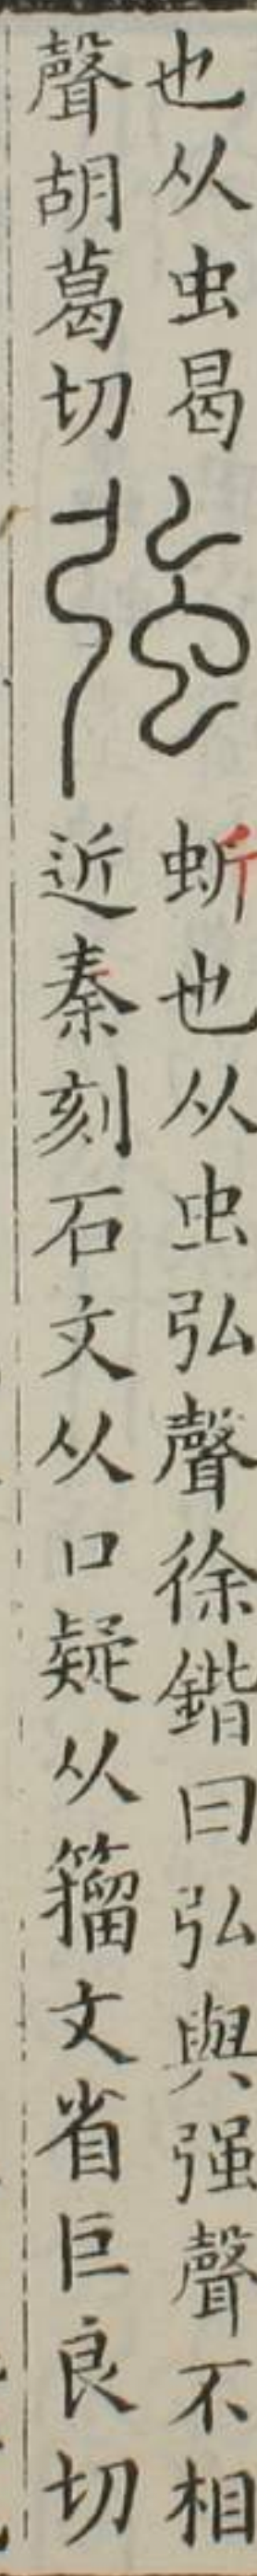 也从虫曷
聲胡葛切
強
蚚也从虫弘聲徐鍇曰弘與强聲不相
近秦刻石文从口疑从籀文省巨良切